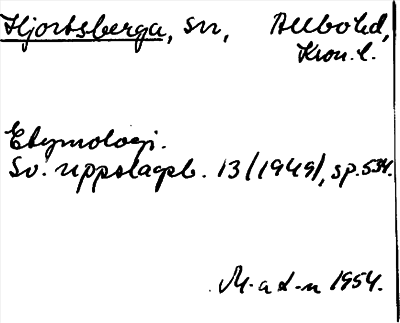 Hjortsberga, sn, Allbo hd,
Kron. l.
Etymologi.
Sv. uppslagsb. 13 (1949), sp. 534.
M-a d-n 1954.